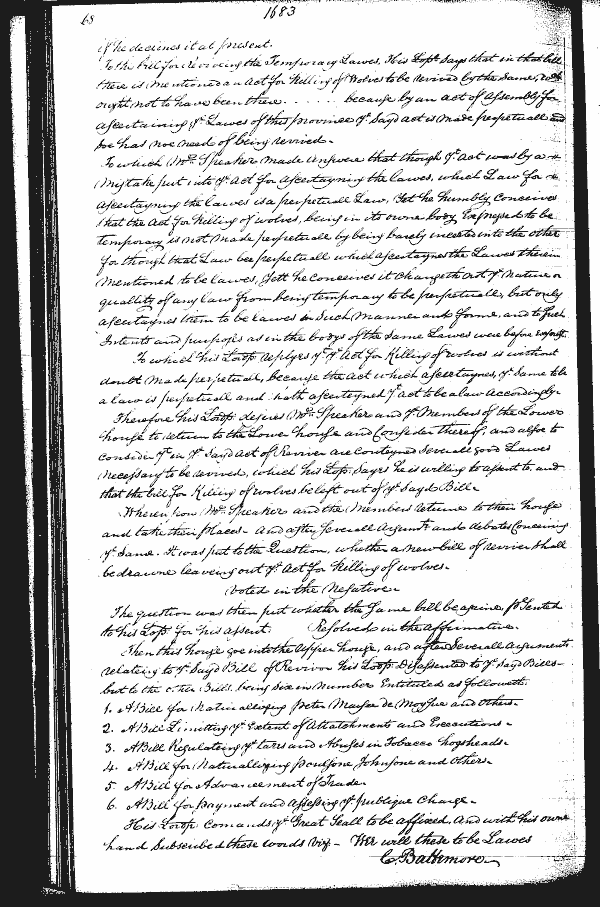 68
1683
if he declines it at present.
To the bill for reviveing the Temporary Lawes, His Lopp. Says that in that bill
there is Mentioned an Act for Killing of Wolves to be revived by the Same,
ought not to have been there ...... because by an act of Assembly for
ascertaining ye Lawes of this province ye Sayd act is made perpetuall and
soe has noe need of being revived.
To which Mr. Speaker made answere that though ye act was by a
Mistake put into ye Act for Ascertayning the lawes, which Law for
ascertayning the lawes is a perpetuall Law, Yet he humbly Conceives
that the Act for Killing of wolves, being in its owne body Expressed to be
temporary is not Made perpetuall by being barely incerted into the other
for though that Law bee perpetuall which ascertaynes the Lawes therein
Mentioned to be lawes, yett he conceives it Changeth not ye Nature or
quallity of any law from being temporary to be perpetuall, but only
ascertaynes them to be lawes in Such Manner and forme, and to Such
Intents and purposes as in the bodys of the Same Lawes were before exprest.
To which his Lopp. replyes yt ye Act for Killing of wolves is without
doubt Made perpetuall, because the Act which ascertaynes ye Same to be
a law is perpetuall and hath ascertayned yt act to be a law accordingly.
Therefore his Lopp. desires Mr. Speaker and ye Members of the Lower
house to returne to the Lower house and Consider thereof, and alsoe to
consider yt in ye Sayd act of Revivor are conteyned Severall good Lawes
necessary to be revived, which his Lopp. Says he is willing to assent to and
that the bill for Killing of wolves be left out of ye Sayd Bill.
Whereupon Mr. Speaker and the Members returne to their house
and take their places. And after Severall Argumts. and debates Concerning
ye Same. It was put to the Question, whether a new bill of revivor shall
be drawne leaveing out ye Act for Killing of wolves.
Voted in the Negative.
The question was then put whether the Same bill be againe psented
to his Lopp. for his assent. Resolved in the affirmative.
Then this house goe into the Upper house, and after Severall arguments
relateing to ye Sayd Bill of Revivor his Lopp. Disassented to ye Sayd Bills
but to the other Bills being Six in Number Entituled as followeth.
1. A Bill for Naturallizing Peter and Others.
2. A Bill Limitting ye Extent of Attatchments and Executions.
3. A Bill Regulateing ye tares and Abuses in Tobacco hogsheads.
4. A Bill for Naturallizing Johnsone and Others.
5. A Bill for Advancement of Trade.
6. A Bill for payment and assessing ye publique Charge.
His Lopp. Comands ye Great Seall to be affixed, And with his owne
hand Subscribed these words viz. Wee will these to be Lawes
C. Baltemore